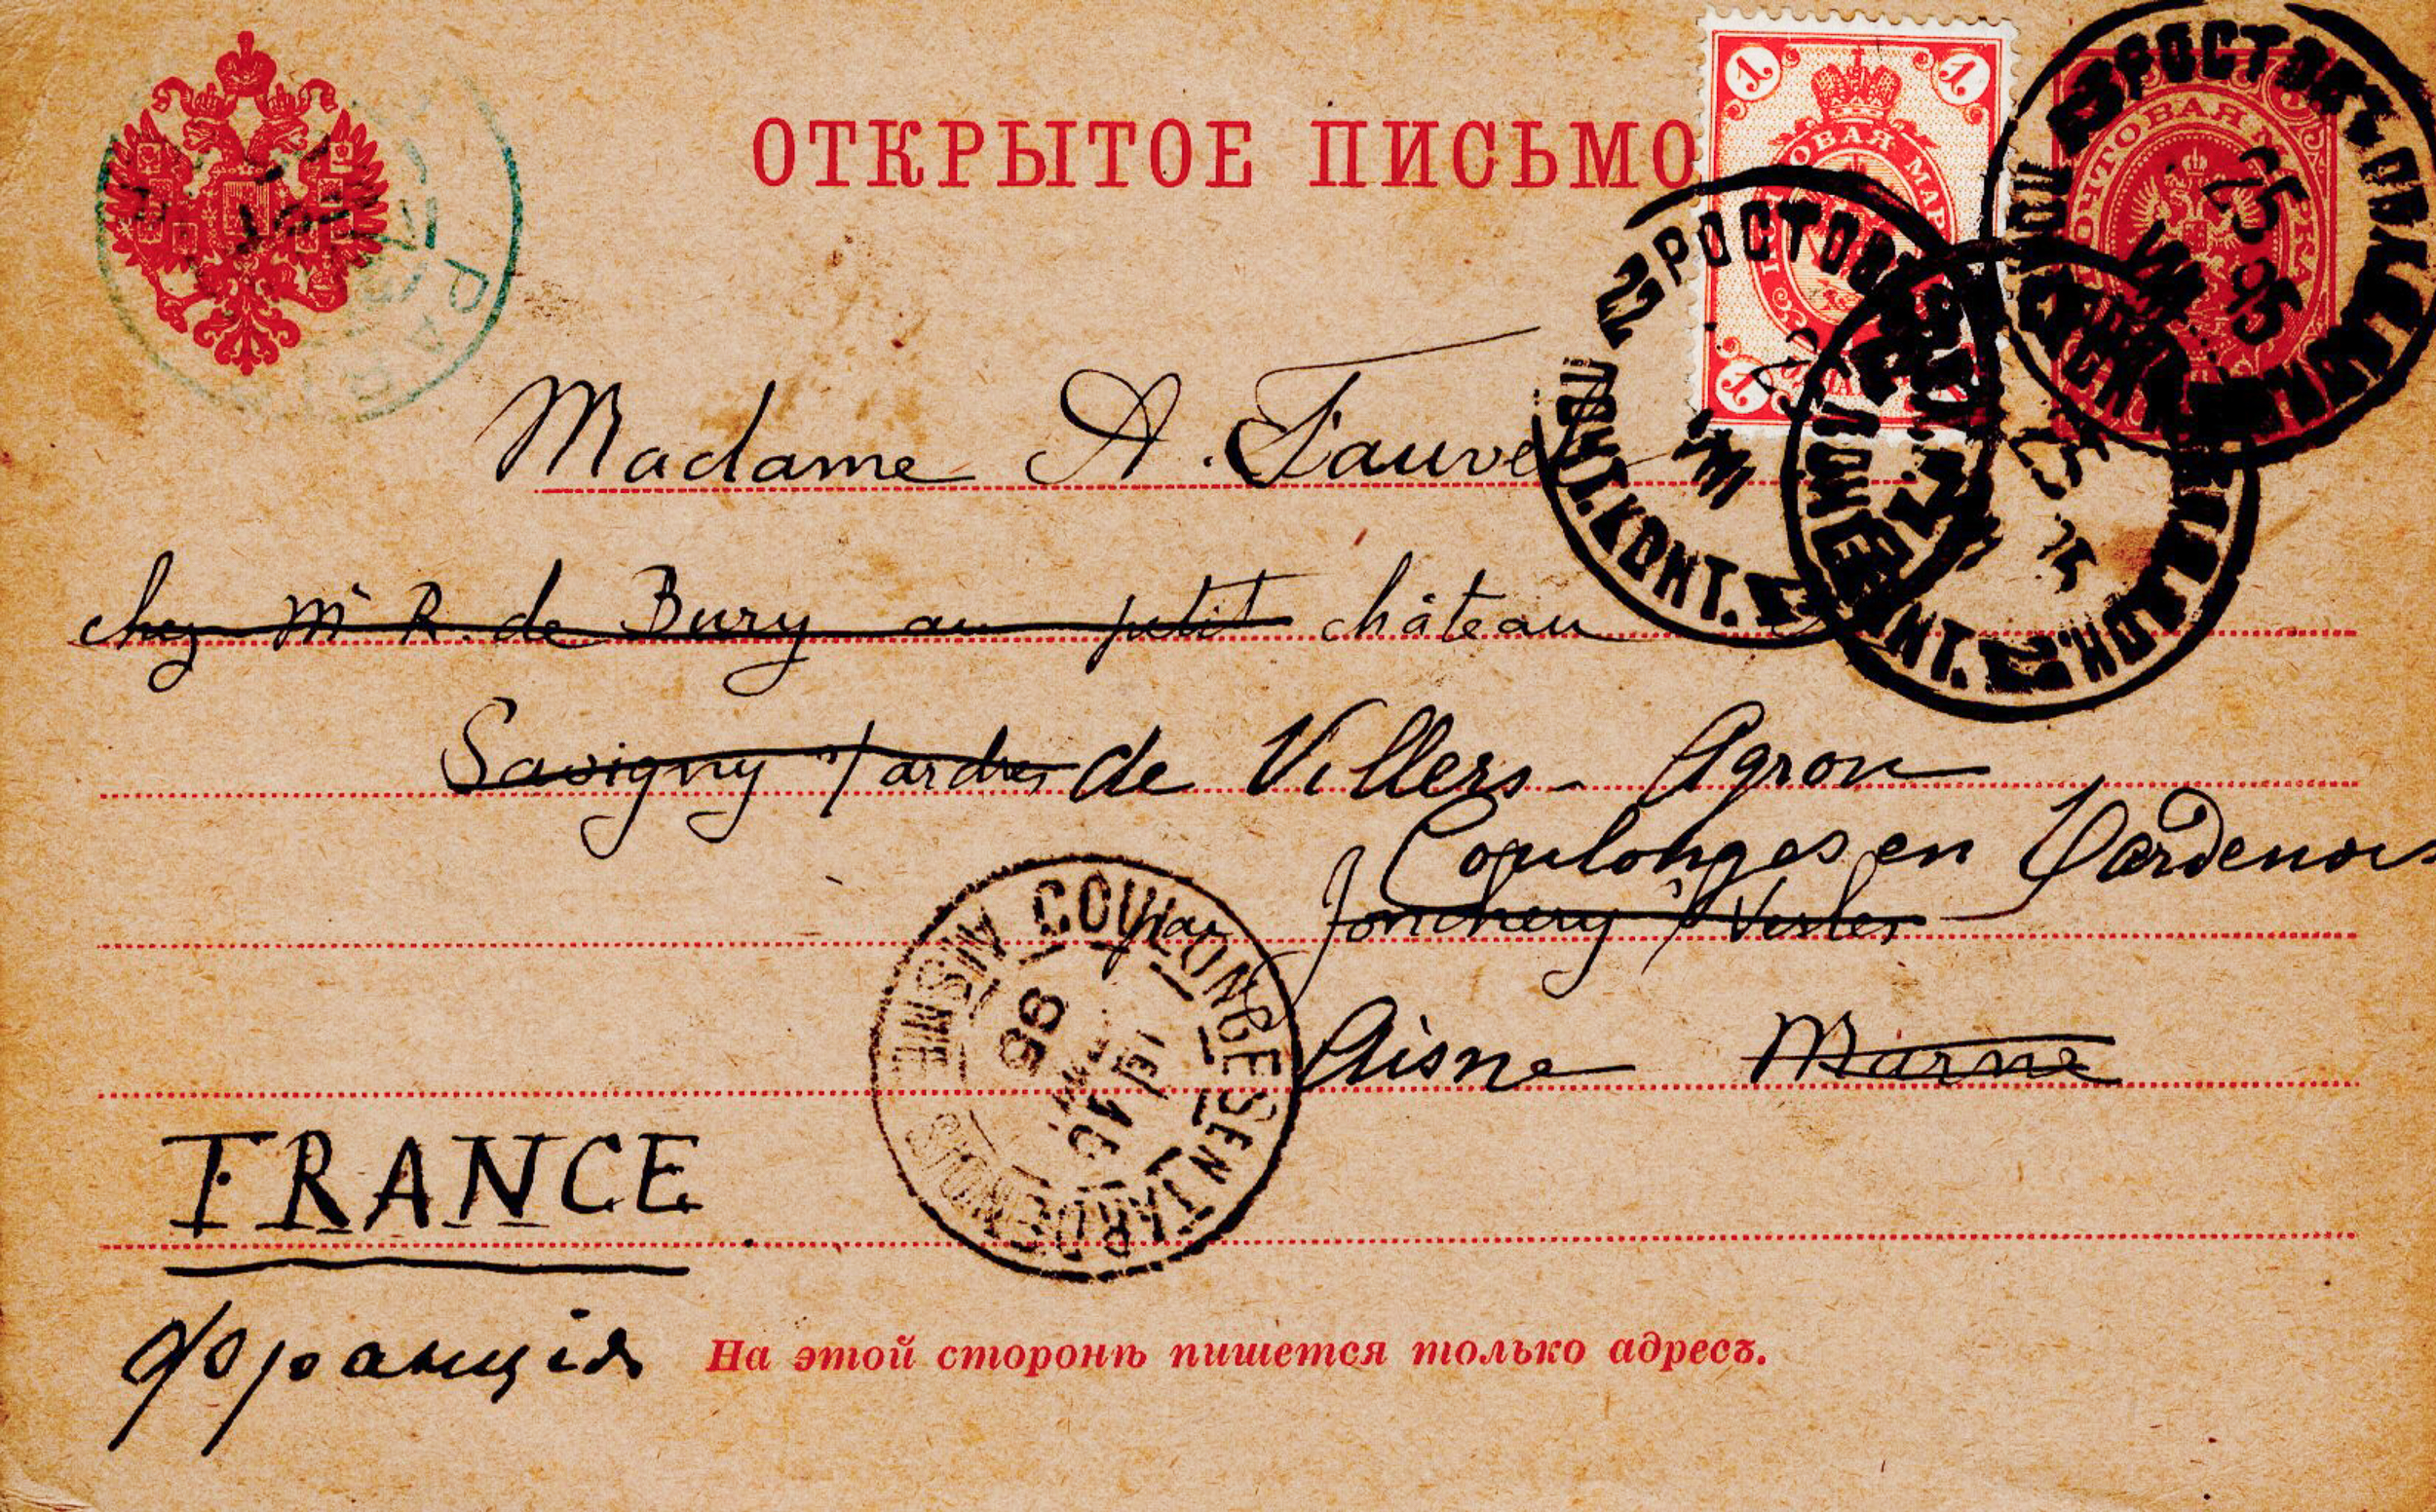 ОТКРЫТОЕ ПИСЬМО
1 1
1
ПОЧТОВАЯ МАРКА
РОСТОВЪ
25
95
2 РОСТОВ
ПОЧТ. КОНТ.
Madame A. Fauvel
chez Mr R. de Bury au petit château
Savigny s/ardres de Villers-Agron
Coulonges en Tardenois
par Jonchery s/Vesles
COULONGES EN TARDENOIS
AISNE
95
Aisne Marne
FRANCE
Франція
На этой сторонѣ пишется только адресъ.